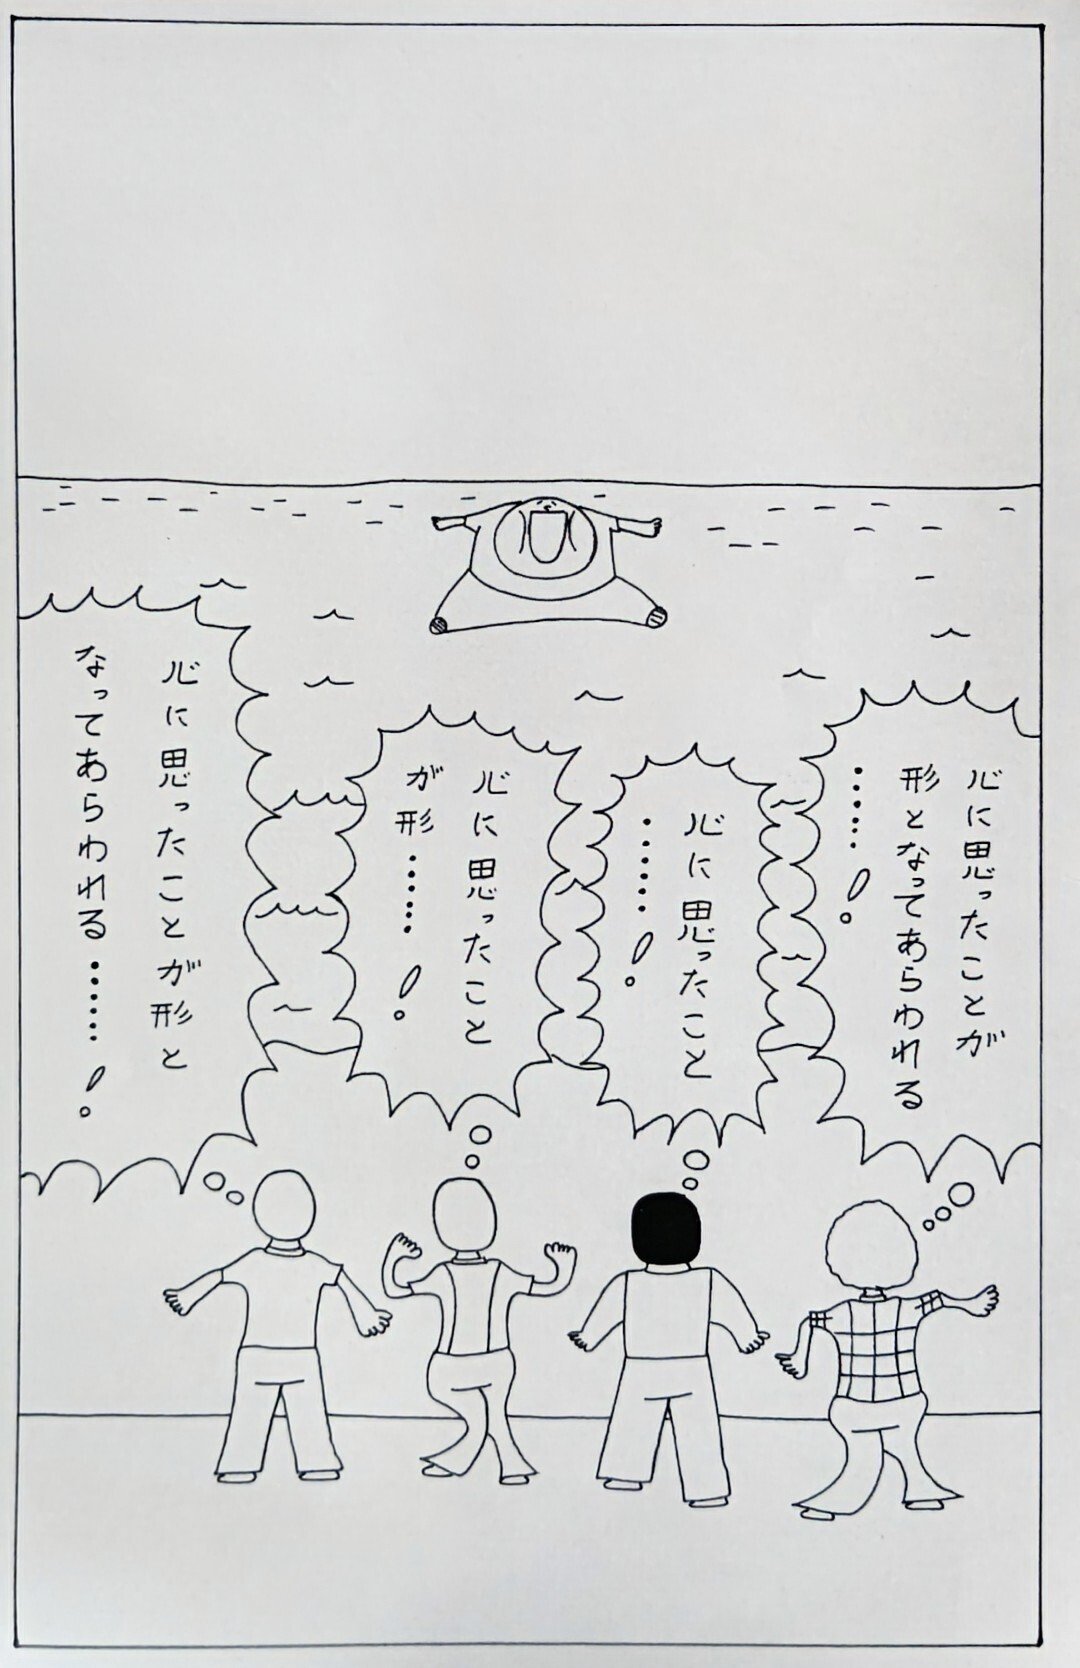 心に思ったことが
形となってあらわれる
‥‥‥!。
心に思ったこと
‥‥‥!。
心に思ったこと
が形‥‥‥!。
心に思ったことが形と
なってあらわれる‥‥‥!。